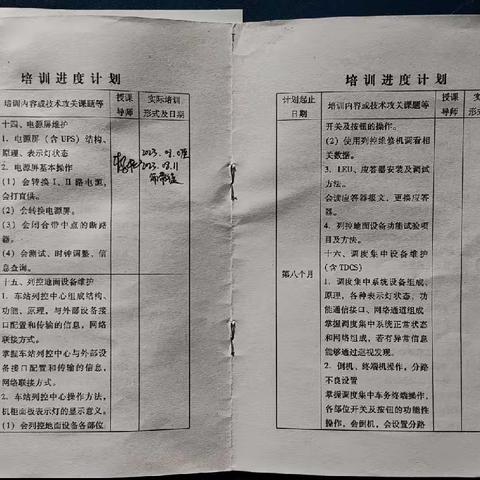 培训进度计划
培训内容或技术攻关课题等
授课
导师
实际培训
形式及日期
十四、电源屏维护
1．电源屏（含 UPS）结构、
原理、表示灯状态
2．电源屏基本操作
（1）会转换Ⅰ、Ⅱ路电源，
会打直供。
（2）会转换电源屏。
（3）会闭合带中点的断路
器。
（4）会测试、时钟调整、信
息查询。
2023.
2023. 03.11
十五、列控地面设备维护
1．车站列控中心组成结构、
功能、原理，与外部设备接
口配置和传输的信息，网络
联接方式。
掌握车站列控中心与外部设
备接口配置和传输的信息，
网络联接方式。
2．车站列控中心操作方法，
机柜面板表示灯的显示意义。
（1）会列控地面设备各部位
培训进度计划
计划起止
日期
培训内容或技术攻关课题等
授课
导师
第八个月
开关及按钮的操作。
（2）使用列控维修机调看相
关数据。
3．LEU、应答器安装及调试
方法。
会读应答器报文、更换应答
器。
4．列控地面设备功能试验项
目及方法。
十六、调度集中设备维护
（含 TDCS）
1．调度集中系统设备组成、
原理，各种表示灯状态、功
能通信接口、网络通道组成
掌握调度集中系统正常状态
和网络组成，若有异常信息
能够通过巡视发现。
2．倒机、终端机操作，分路
不良设置
掌握调度集中车务终端操作，
各部位开关及按钮的功能性
操作，会倒机，会设置分路